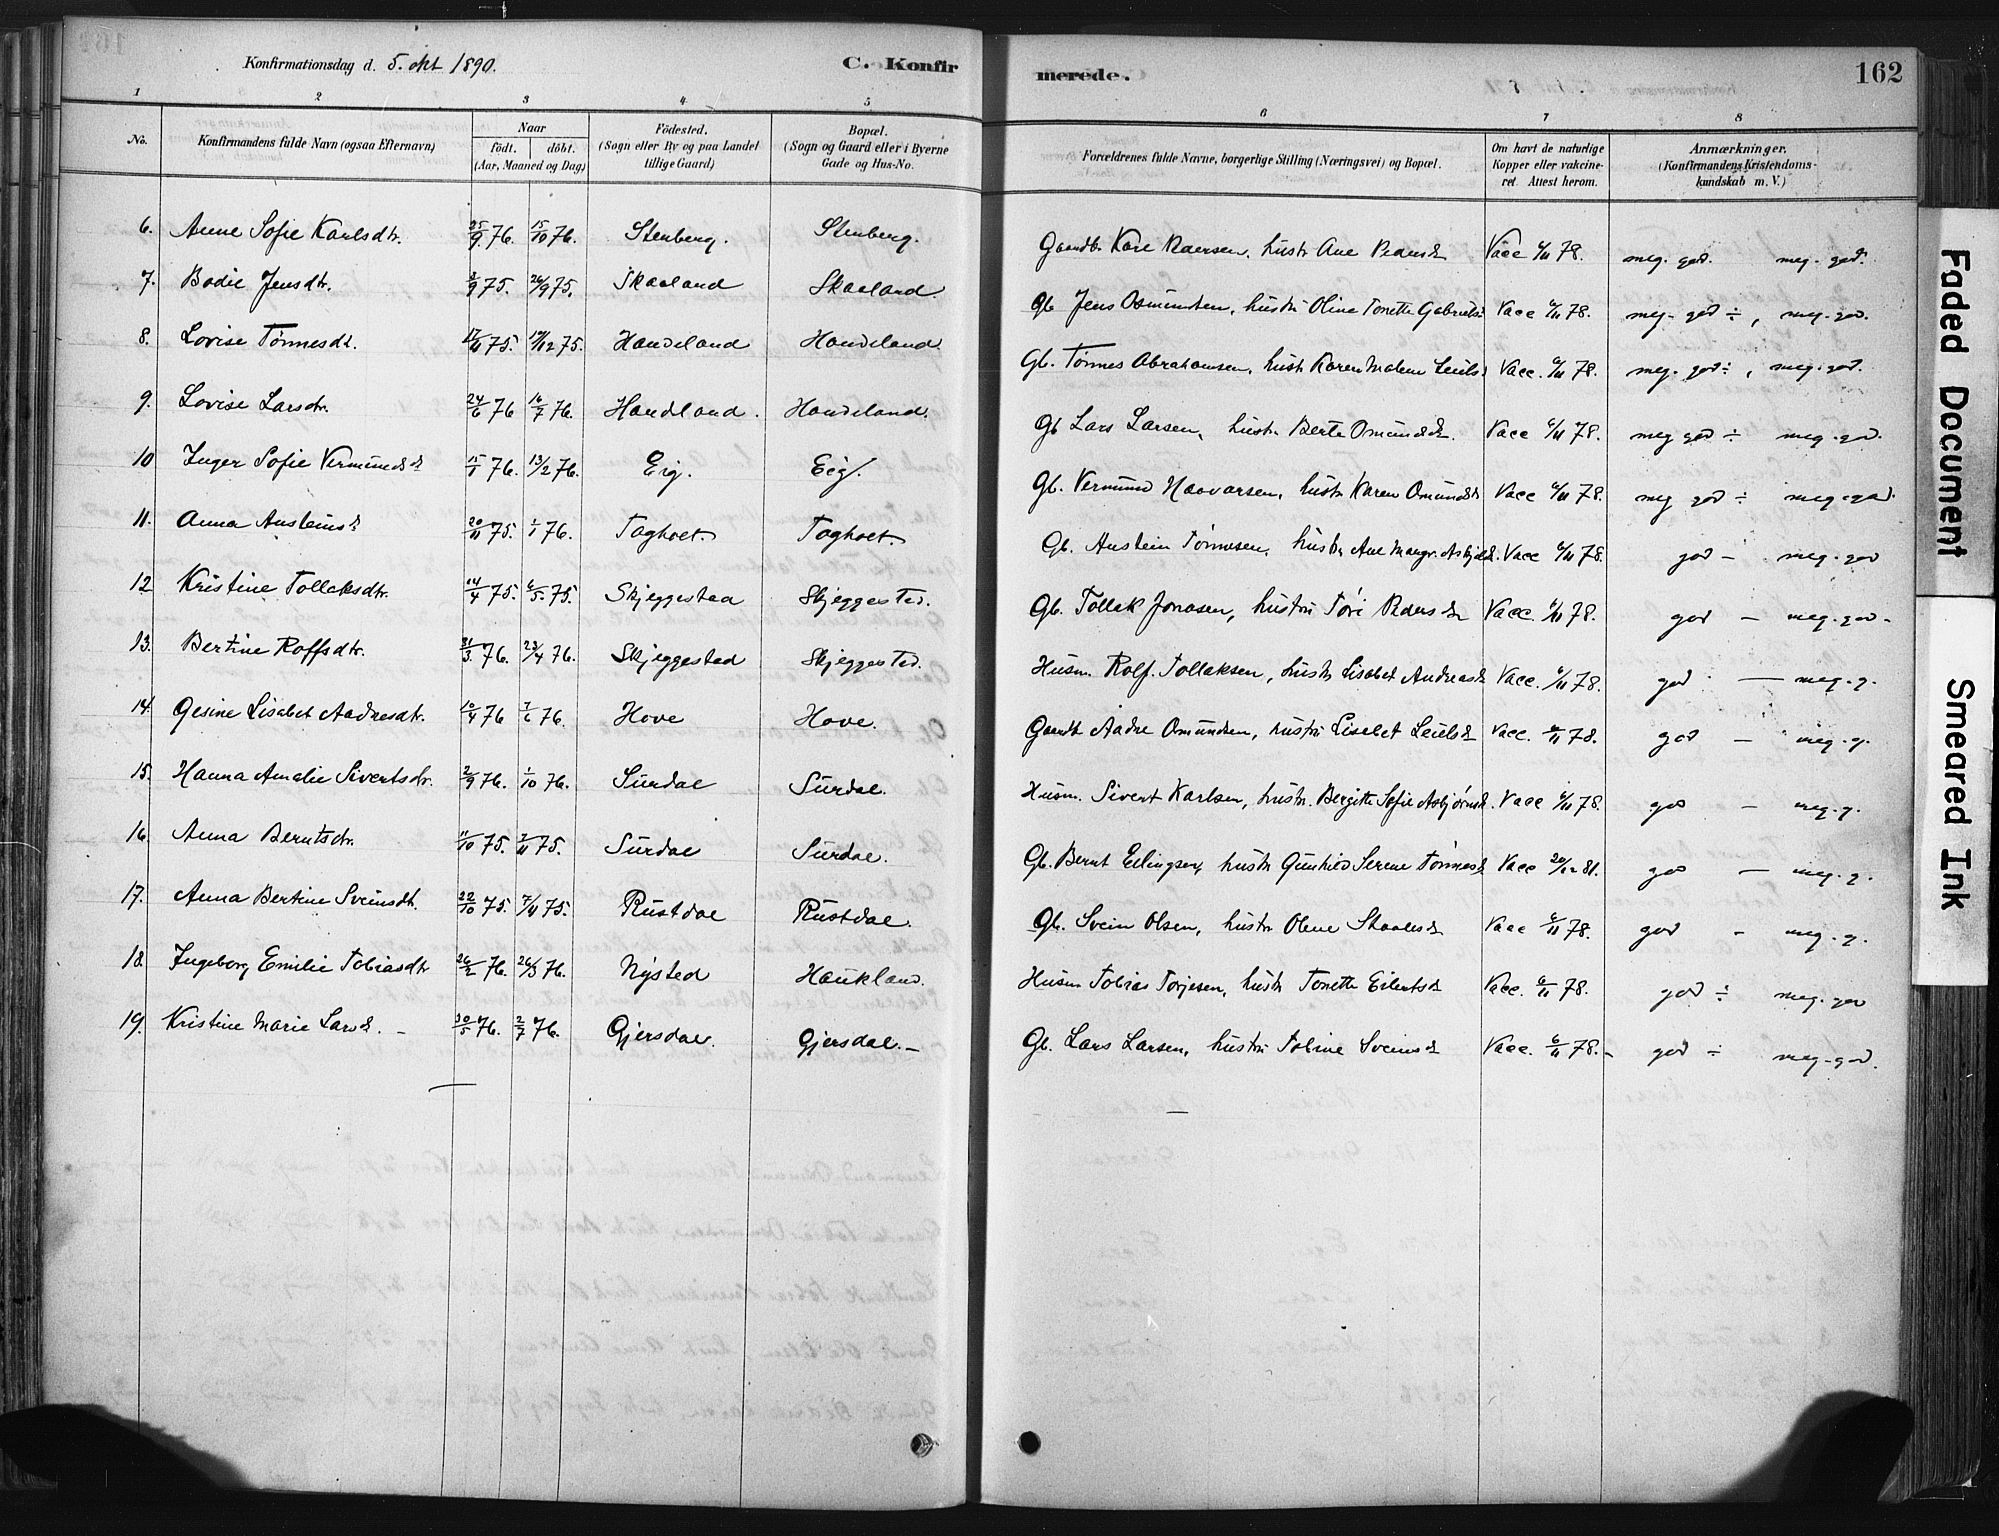 Konfirmationsdag d. 5. okt 1890.
C. Konfirmerede.
162
1 2 3 4 5 6 7 8
No.
Konfirmandens fulde Navn (ogsaa Efternavn)
Naar
födt. döbt.
(Aar, Maaned og Dag)
Födested.
(Sogn eller By og paa Landet
tillige Gaard)
Bopæl.
(Sogn og Gaard eller i Byerne
Gade og Hus-No.
Forældrenes fulde Navne, borgerlige Stilling (Næringsvei) og Bopæl.
Om havt de naturlige
Kopper eller vakcine-
ret. Attest herom.
Anmærkninger.
(Konfirmandens Kristendoms-
kundskab m. V.)
6. Anne Sofie Karlsdtr. 25/9 76. 15/10 76. Stenberg. Stenberg. Hustr. Ane Vacc 6/11 78. meg. god. meg. god.
7. Bodil Jensdtr. 2/9 75. 26/9 75. Skaaland Skaaland. Gb. Jens Osmundsen, hustr. Oline Tonette Gabriels Vacc 6/11 78. meg. god ÷, meg. god.
8. Lovise Tønnesdt. 17/11 75. 19/12 75. Handeland Handeland. Gb. Tønnes Abrahamsen, hustr. Karen Malene Vacc. 6/11 78. meg. god ÷, meg. god.
9. Lovise Larsdtr. 24/6 76 16/7 76. Handeland. Handeland. Gb. Lars Larsen, hustr. Berte Omundsd. Vacc 6/11 78. meg god ÷ meg. god.
10 Inger Sofie Vermundsd 15/1 76. 13/2 76. Eig. Eig. Gb. Vermund Haavarsen, hustr. Karen Omundsd Vacc 6/11 78. meg god ÷ meg. god.
11. Anna Austeinsd 20/11 75. 1/1 76. Toghoet. Toghoet. Gb. Austein Tønnesen, hustr. Ane Margr. Vacc 6/11 78. god - meg. god
12 Kristine Tollaksdtr. 24/4 75. 6/5 75. Skjeggestad Skjeggestad. Gb. Tollak Jonasen, hustru Tori Pedersd Vacc. 6/11 78. god - meg. god.
13. Bertine Rolfsdtr. 31/3 76. 23/4 76. Skjeggestad Skjeggestad. Husm. Rolf Tollaksen, hustr. Lisabet Andreasd Vacc. 6/11 78. god - meg. g.
14. Gesine Lisabet Aadnesdtr. 10/4 76 7/6 76. Hove Hove. Gaardb. Aadne Omundsen, hustru Lisabet Vacc. 6/11 78. god - meg. g.
15. Hanna Amalie Sivertsdtr. 2/9 76. 1/10 76. Surdal Surdal. Husm. Sivert Karlsen, hustr. Bergitte Sofie Asbjørnsd. Vacc 6/11 78. god - meg. g.
16. Anna Berntsdtr. 11/10 75. 7/11 75. Surdal Surdal. Gb. Bernt Erlingsen, hustr. Gunhild Serine Tønnesd Vacc 20/12 81. god - meg. g.
17. Anna Bertine Sveinsdt. 22/10 75. 7/11 75. Rustdal Rustdal. Gb. Svein Olsen, hustr. Olene Staalesd Vacc 6/11 78. god - meg. g.
18. Ingeborg Emilie Tobiasdtr 26/2 76. 26/3 76. Nysted Haukland. Husm Tobias Torjesen, hustr. Tonette Eilertsd Vacc. 6/11 78. god ÷ meg. god
19. Kristine Marie Larsd. - 30/5 76. 2/7 76. Gjersdal. Gjersdal. - Gb. Lars Larsen, hustru Tobine Sveinsd Vacc. 6/11 78. - god ÷ meg. god.
Faded Document
Smeared Ink